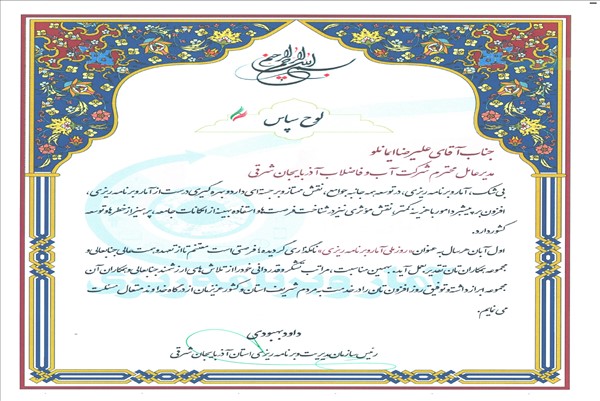 بسم الله الرحمن الرحیم
لوح سپاس
جناب آقای علیرضا ایمانلو
مدیرعامل محترم شرکت آب و فاضلاب آذربایجان شرقی
بی‌شک، آمار و برنامه‌ریزی، در توسعه همه جانبه جوامع، نقش ممتاز و برجسته‌ای دارد و بهره‌گیری درست از آمار و برنامه‌ریزی،
افزون بر پیشبرد امور با هزینه کمتر، نقش مؤثری نیز در شناخت فرصت‌ها و استفاده بهینه از امکانات جامعه، پرهیز از خطرها و توسعه
کشور دارد.
اول آبان هر سال به عنوان «روز ملی آمار و برنامه‌ریزی» نامگذاری گردیده و فرصتی است مغتنم تا از تعهد و همت عالی جنابعالی و
مجموعه همکاران‌تان تقدیر بعمل آید، به همین مناسبت، مراتب تشکر و قدردانی خود را از تلاش‌های ارزشمند جنابعالی و همکاران آن
مجموعه ابراز داشته و توفیق روزافزون‌تان را در خدمت به مردم شریف استان و کشور عزیزمان از درگاه خداوند متعال مسئلت
می نمایم.
داود بهبودی
رئیس سازمان مدیریت و برنامه‌ریزی استان آذربایجان شرقی